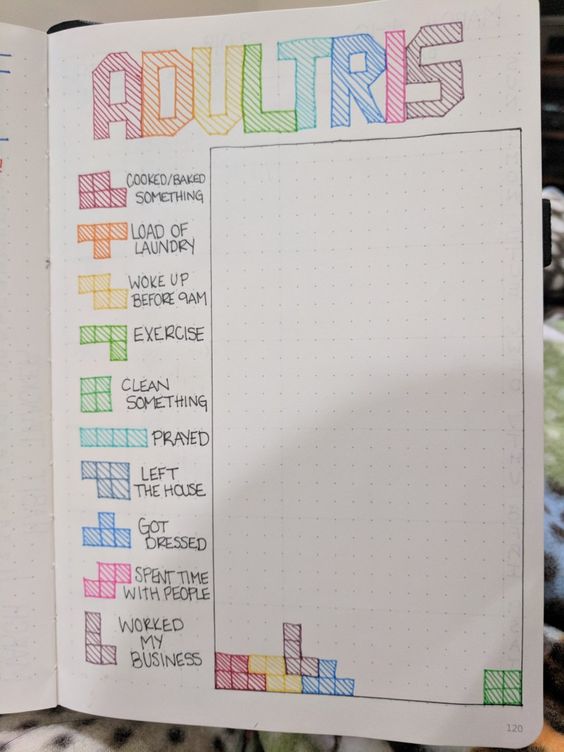 ADULTRIS
COOKED/BAKED
SOMETHING
LOAD OF
LAUNDRY
WOKE UP
BEFORE 9AM
EXERCISE
CLEAN
SOMETHING
PRAYED
LEFT
THE HOUSE
GOT
DRESSED
SPENT TIME
WITH PEOPLE
WORKED
MY
BUSINESS
120